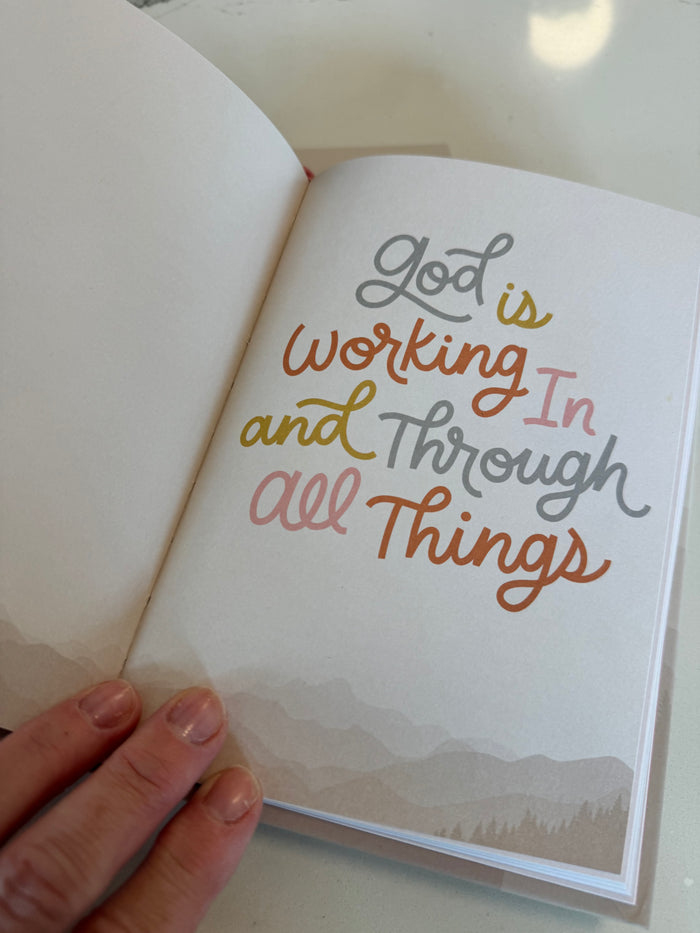 God is
Working In
and Through
All Things